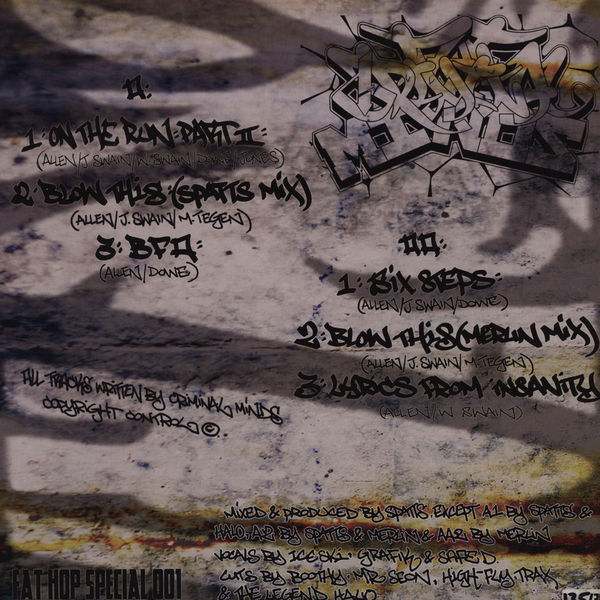 A:
1: ON THE RUN: PART II:
(ALLEN/J. SWAIN/W. SWAIN/DOWE/JONES)
2: BLOW THIS: (SPATTS MIX)
(ALLEN/J. SWAIN/M. TEGEN)
3: BFA:
(ALLEN/DOWE)
AA:
1: SIX STEPS:
(ALLEN/J. SWAIN/DOWE)
2: BLOW THIS (MERLIN MIX)
(ALLEN/J. SWAIN/M. TEGEN)
3: LYRICS FROM INSANITY
(ALLEN/W SWAIN)
ALL TRACKS WRITTEN BY CRIMINAL MINDS
COPYRIGHT CONTROL ©.
MIXED & PRODUCED BY SPATTS. EXCEPT A1 BY SPATTS &
HALO, A2 BY SPATTS & MERLIN & AA2 BY MERLIN
VOCALS BY ICESKI. GRAFIK & SAFE D.
CUTS BY BOOTHY. MR SEON. HIGH FLY. TRAX
& THE LEGEND HALO.
FAT HOP SPECIAL 001